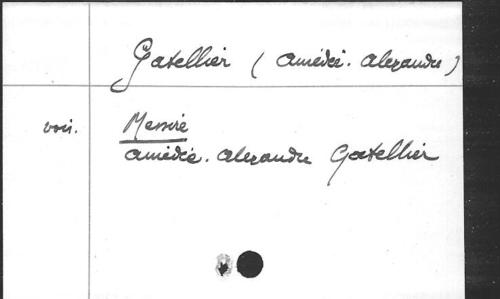 Gatellier (Amédée. Alexandre)
voir. Messire
Amédée. Alexandre Gatellier